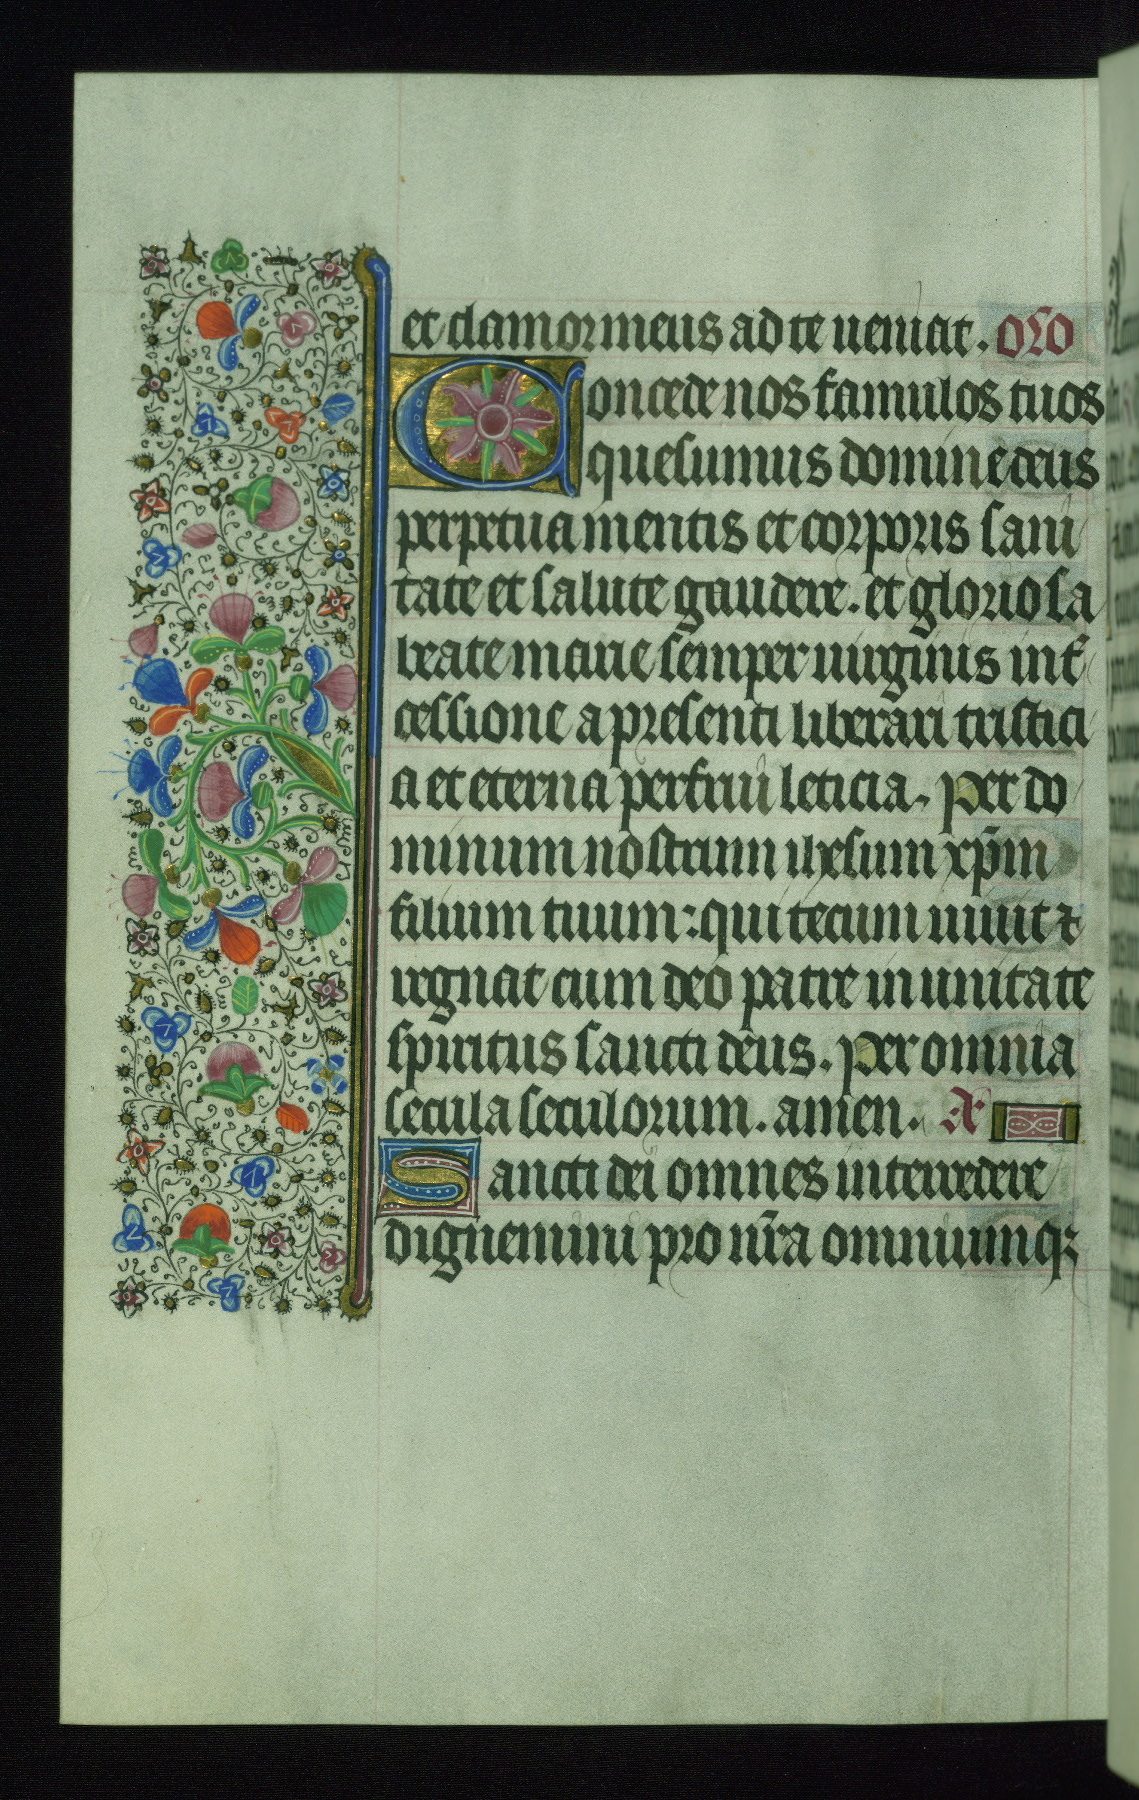 et clamor meus ad te ueniat. oro
Concede nos famulos tuos
quesumus domine deus
perpetua mentis et corporis sani
tate et salute gaudere. et gloriosa
beate marie semper uirginis int̄
cessione a presenti liberari tristici
a et eterna perfrui leticia. Per do
minum nostrum ihesum xp̄m
filium tuum: qui tecum uiuit ⁊
regnat cum deo patre in unitate
spiritus sancti deus. Per omnia
secula seculorum. amen. A
Sancti dei omnes intercedere
dignemini pro nr̄a omniumqꝫ